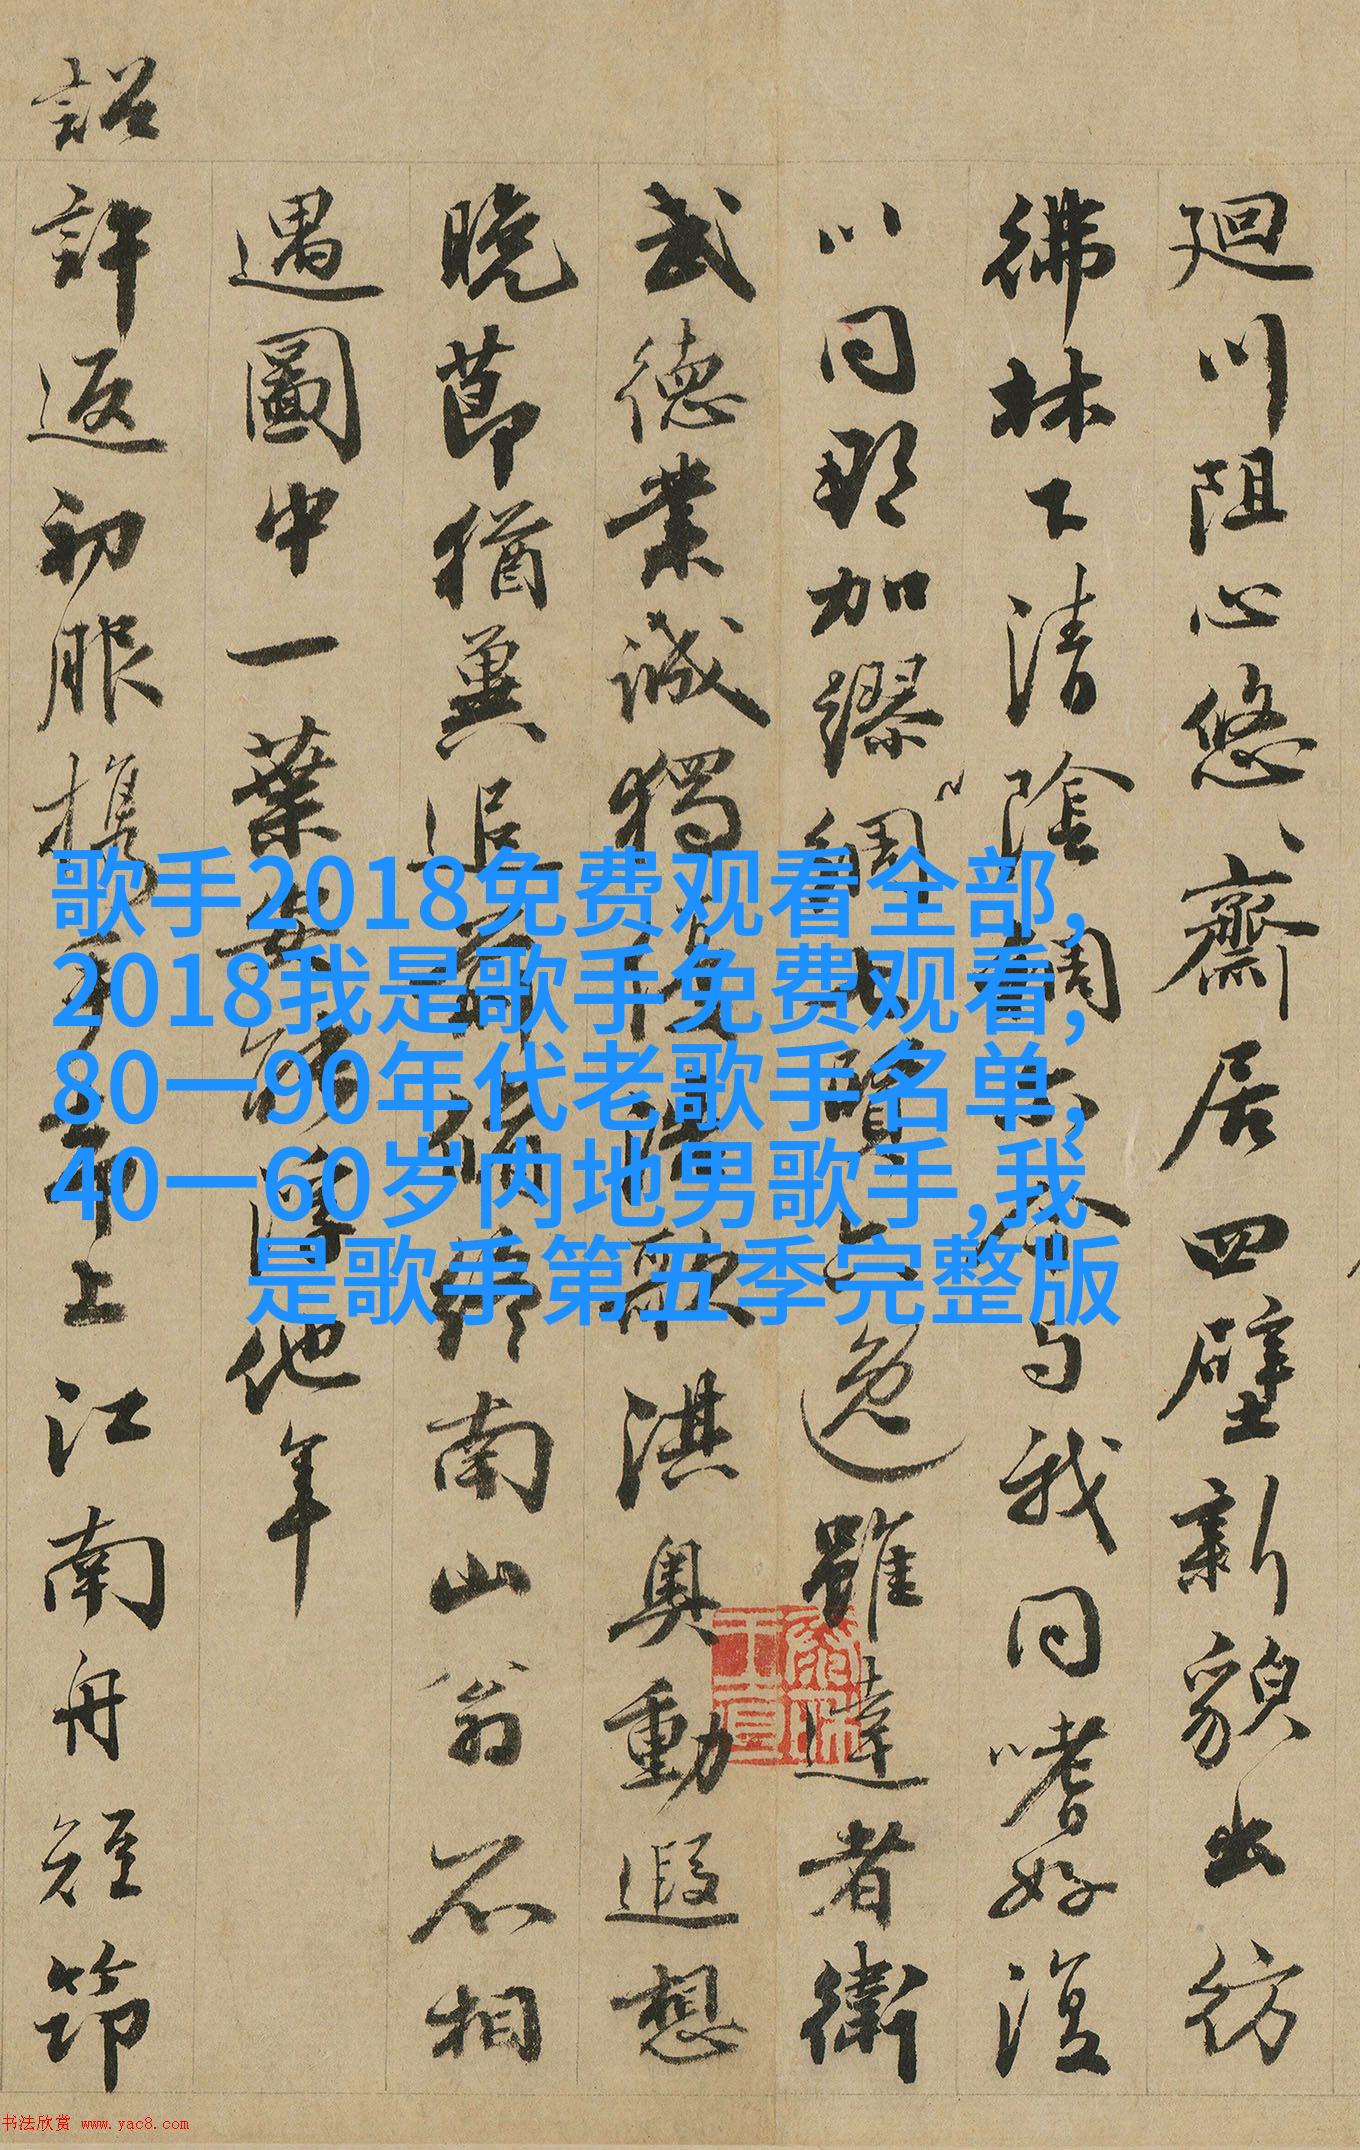 廻川阻心悠、齋居四壁新貌出彷
彿林下清陰与我同嗜好復
以同那加繆綢逸雖達者衛
武德業誠獨歌淇奧動遐想
晚節猶冀追南山翁不相
遇圖中一葉他年
詔許返初服携手上江南舟短笻
歌手2018免费观看全部,
2018我是歌手免费观看,
80一90年代老歌手名单,
40一60岁内地男歌手,我
是歌手第五季完整版
书法欣赏 www.yac8.com